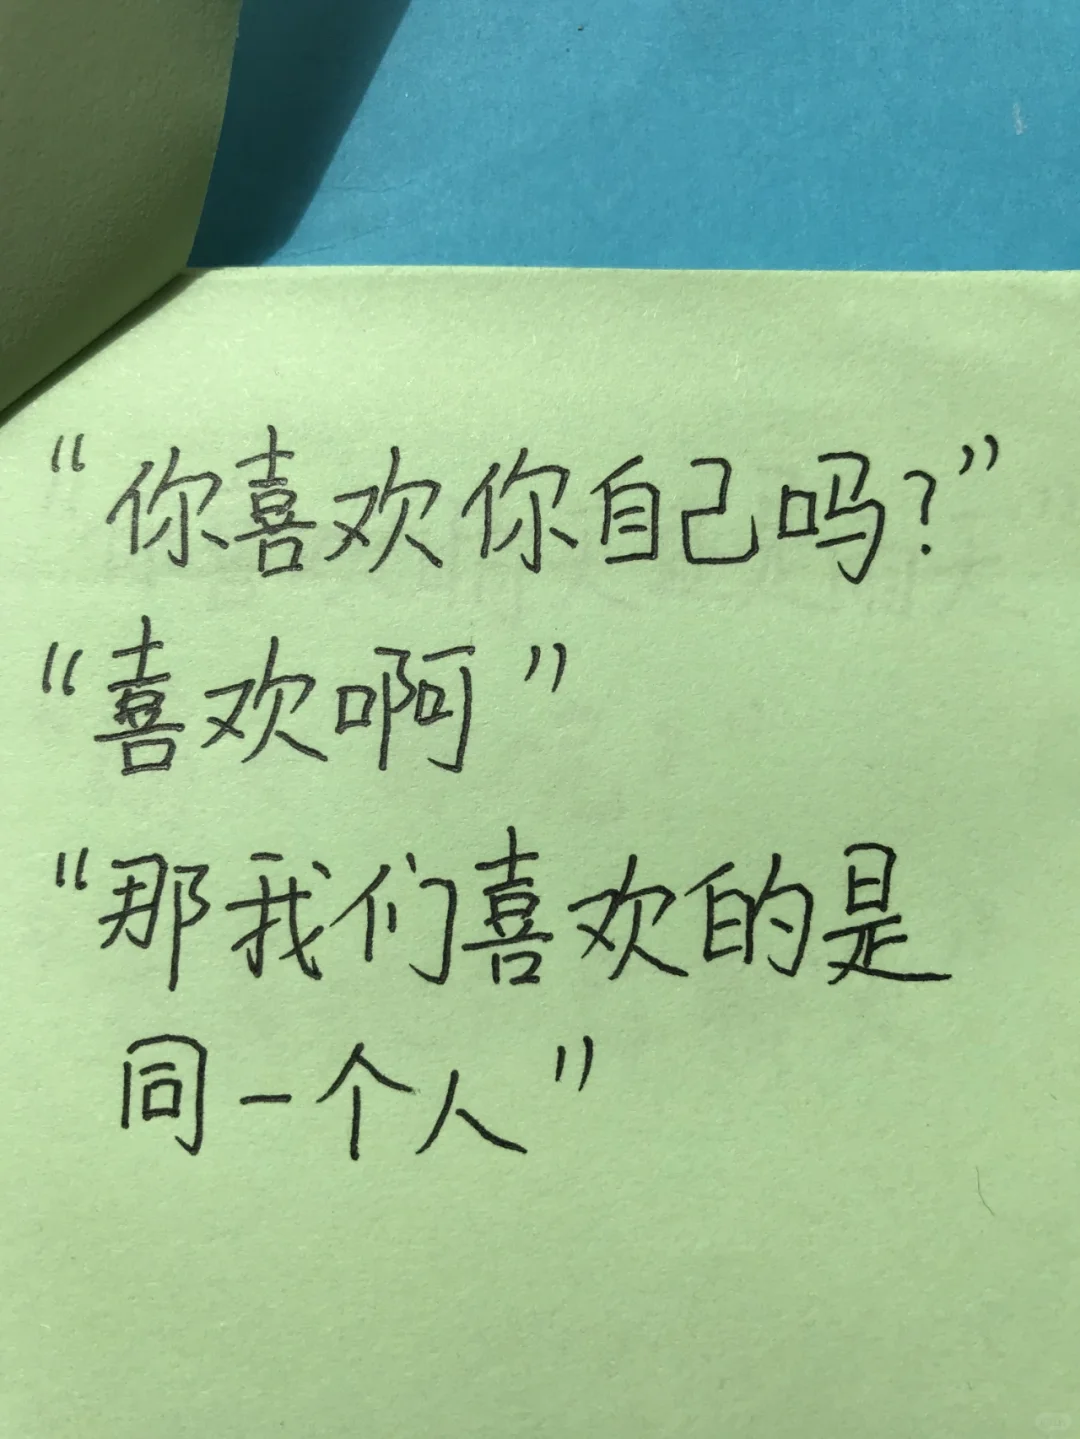 “你喜欢你自己吗?”
“喜欢啊”
“那我们喜欢的是
同一个人”